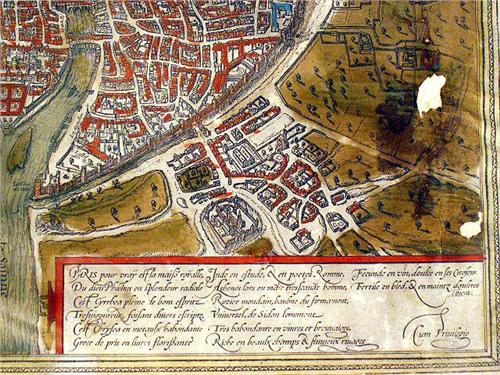 PARIS pour vray est la maisõ royalle,
Du dieu Phœbus en splendeur radiale
C'est Cyrrhea pleine de bons esprits
Trosingereux, faisans divers escriptz
C'est Chrysea en metaulx habondante
Grece de pris en livres florissante
Inde en estude, & en poetes Romme,
Athenes lors en maĩt tressavãt homme,
Rozier mondain, baulme du firmament,
Universel de Sidon lornement,
Tres habondante en vivres et breuvaiges
Riche en beaulx champs & fluvieux rivages
Fecunde en vin, doulce en ses Citoyens
Fertile en bledz, & en maintz
biens.
Cum Privilegio